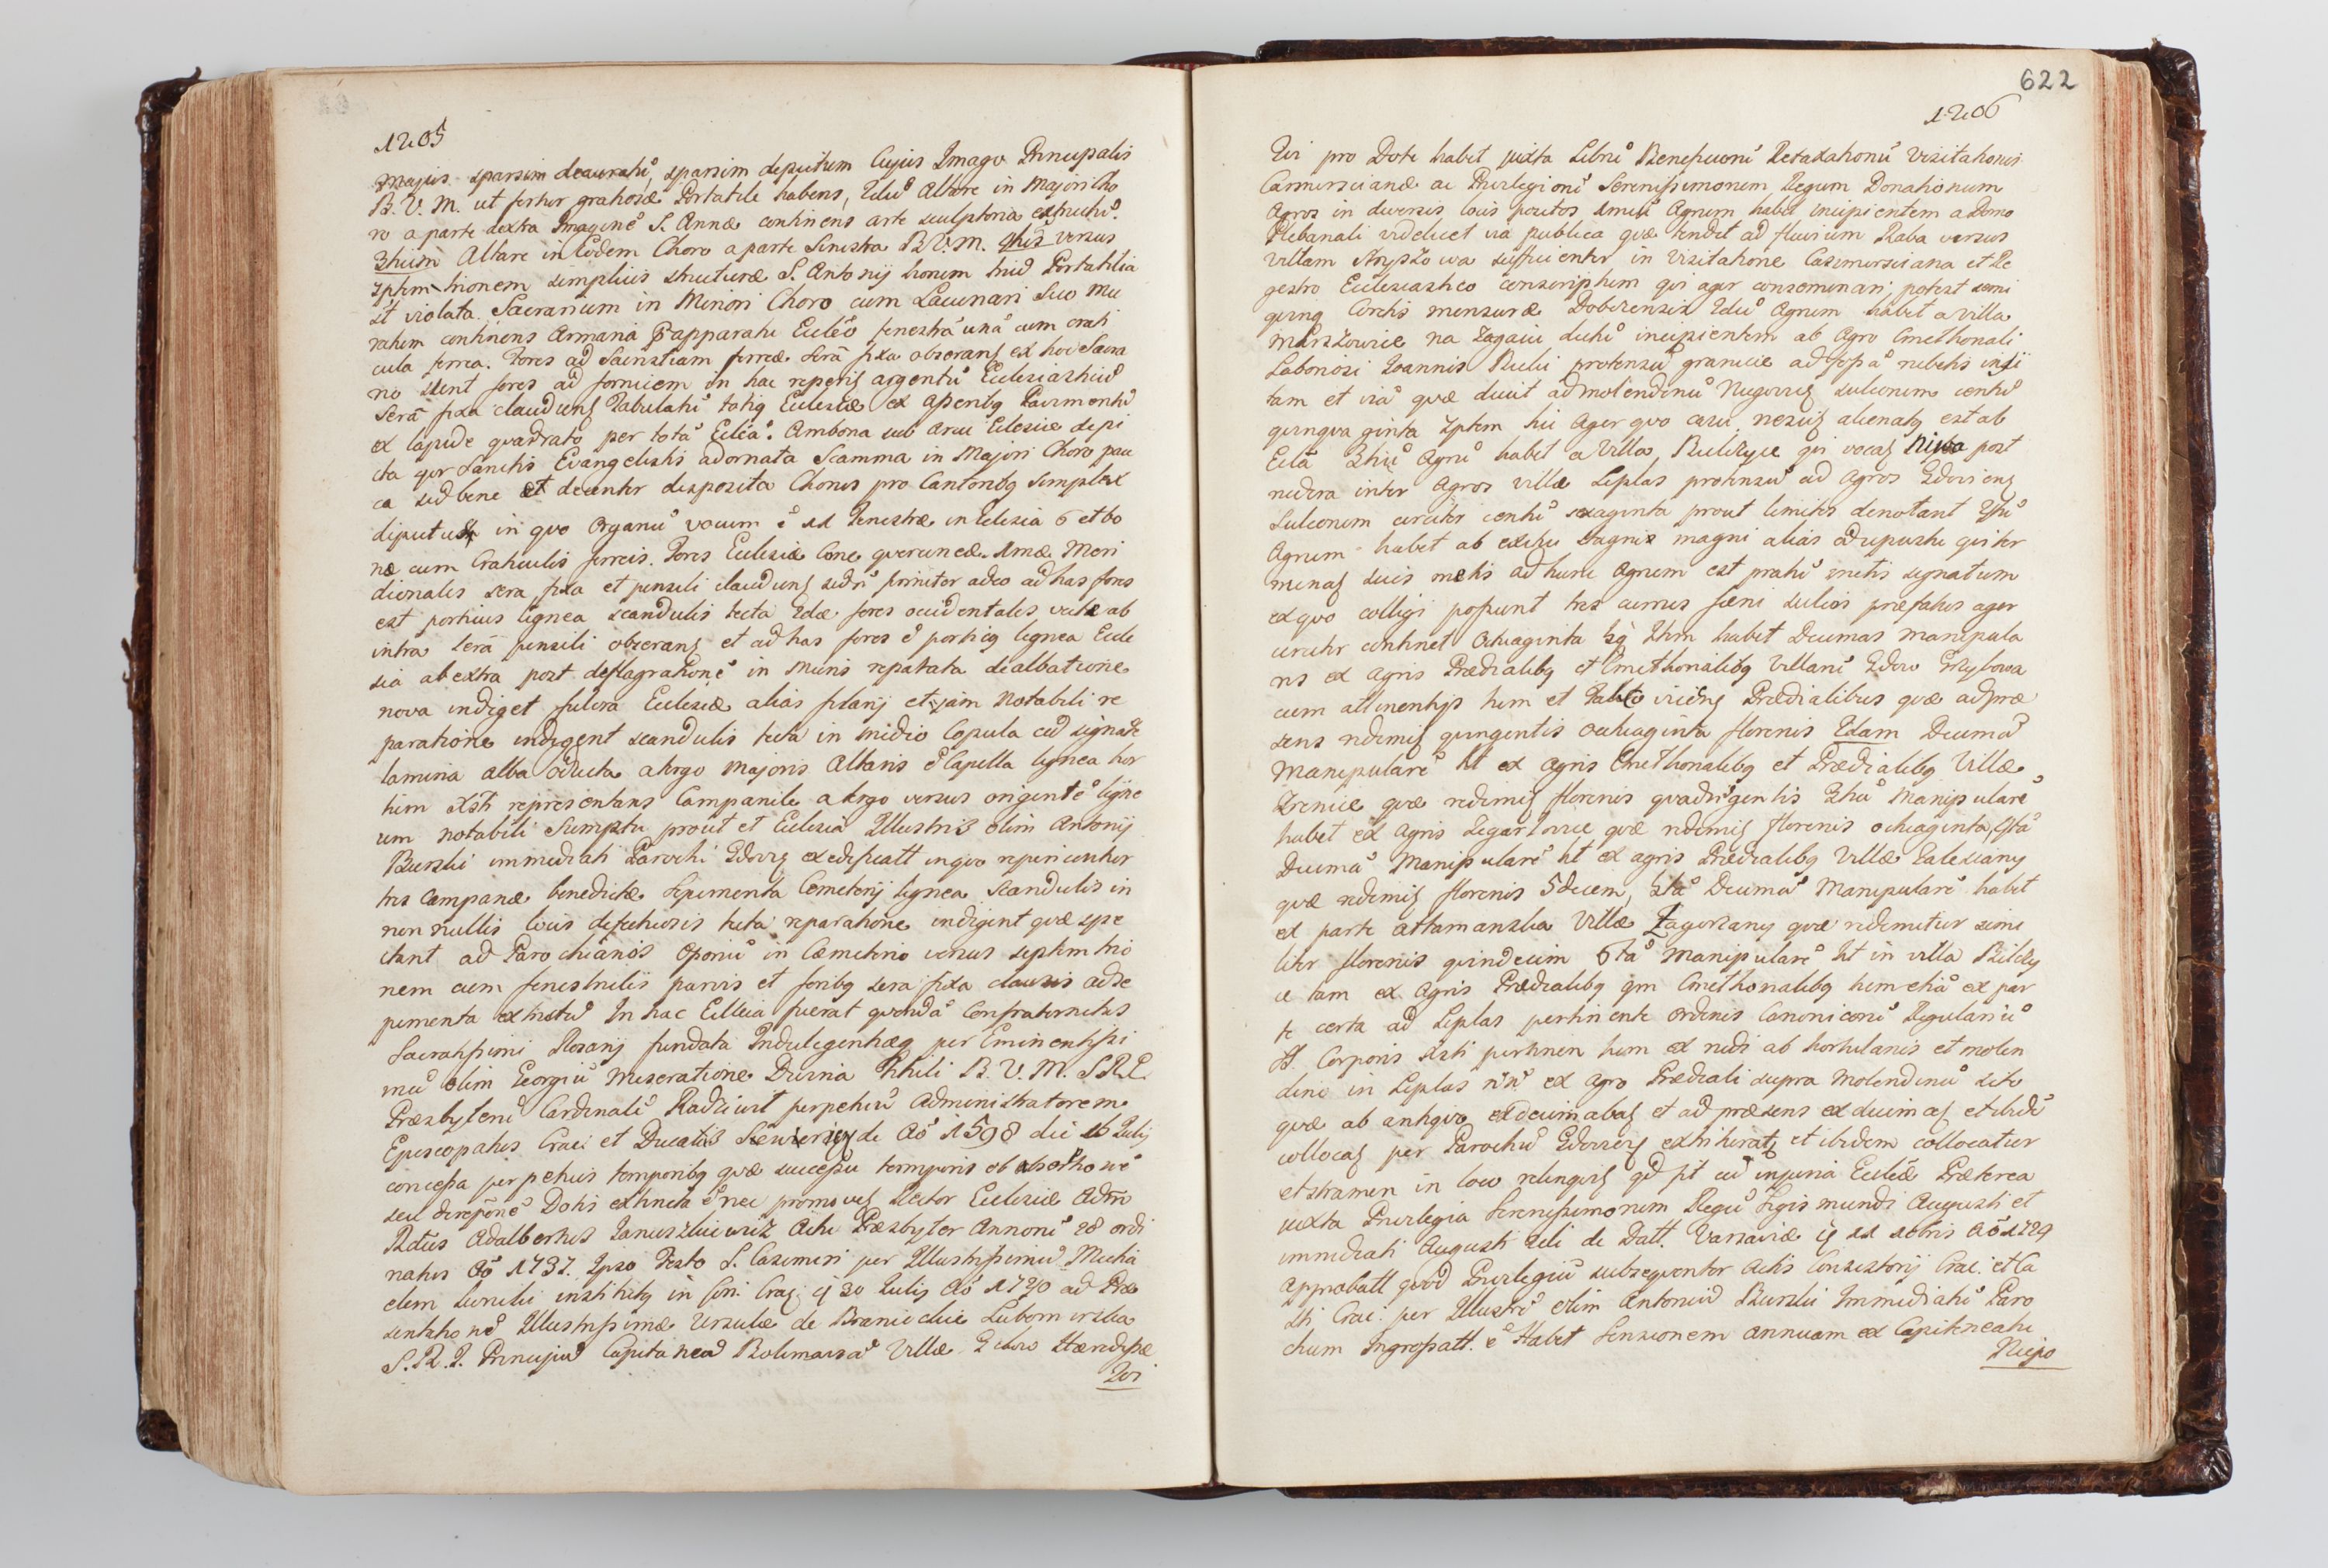 1205
Majus sparsim deauratū, sparsim depictum Cujus Imago Principalis
B. V. M. ut fertur gratiosæ Portatile habens, 2dū Altare in Majori Cho
ro a parte dextra Imaginē S. Annæ continens arte sculptoria exstructū.
3tium Altare in Eodem Choro a parte Sinistra B.V.M. versus
7ptem trionem simplicis structuræ S. Antonij horum triū Portatilia
st violata. Sacrarium in Minori Choro cum Lacunari Suo Mu
ratum continens Armaria P apparatu Ecclēo fenestrā unā cum crati
cula ferrea. Fores ad Sacristiam ferreæ Serā fixa obserang ex hoc Sacra
rio sunt fores ad fornicem in hac reperit argentū Ecclesiasticū
Serā fixa claudung Tabulatū totig Ecclesiæ ex asseribg Pavimentū
ex lapide quadrato per totā Ecclēā. Ambona sub arcu Ecclesiæ depi
cta qor Sanctis Evangelistis adornata Scamma in Majori Choro pau
ca sed bene et decenter disposita Chorus pro Cantoribg Simplex
dipictus in quo Organū vocum ē 11 Fenestræ in Eclesia 6 et bo
næ cum Craticulis ferreis. Fores Ecclesiæ Cone querceneæ. 1mæ Meri
dionales sera fixa et pensili claudung sedri firmiter adeo ad has fores
est porticus lignea scandulis tecta 2dæ fores occidentales vectæ ab
intra serā pensili obserang et ad has fores ē porticg lignea Eccle
sia ab extra post deflagrationē in Muris reparata dealbatione
nova indiget fulcra Ecclesiæ alias filarij etjam Notabili re
paratione indigent scandulis tecta in medio Copula cū signare
lamina alba obducta a tergo Majoris Altaris ē Capella lignea hor
tum Xsti representans Campanile a tergo versus origentē ligne
um notabili Sumptu prout et Eclesia Illustris olim Antonij
Burski immediati Parochi Gdovg exedificatt in quo reperiuntur
tres Campanæ benedictæ Sepimenta Cœmeterij lignea Scandulis in
non nullis locis defectuosis tecta reparatione indigent quæ spe
ctant ad Parochianos Osoriū in Cœmeterio versus septemtrio
nem cum fenestrelis parvis et foribg sera fixa clausis ad se
pimenta extructū In hac Ecclēia fuerat quondā Confraternitas
Sacratissimi Rosarij fundata Indulgentiæg per Eminentissi
mū olim Georgiū Miseratione Divina Tituli B. V. M. S.R.E.
Præsbyterū Cardinalē Radziwił perpetuū Administratorem
Episcopatus Crac: et Ducatus Sewieriej de Aō 1598 die 16 Julij
concessa perpetuis temporibg quæ successu temporis ob
seu direpōnē Dotis extincta ē nec promoveg Rector Ecclesiæ Adm
Rdus Adalbertus Januszkiewicz Actu Præsbyter Annorū 28 ordi
natus Aō 1737. Ipso Festo S. Casimiri per Illustrissimū Micha
elem Kunicki institutg in Crac: ij 30 Julij Aō 1740 ad Præ
sentationē Illustrissimæ Ursulæ de Branickie Lubomirska
S. R. I. Principis Capitanea Bolimovsā Villæ Gdow Hæredissæ
Qvi

622
1206
Qvi pro Dote habet juxta Librū Beneficiorū Retaxationū Visitationis
Camursianæ ac Privilegiorū Serenissimorum Regum Donationum
Agros in diversis locis positos 1mū Agrum habet incipientem a Domo
Plebanali videlicet via publica quæ tendit ad fluvium Raba versus
villam Stryszowa sufficienter in visitatione Casimirsciana et Re
gestro Ecclesiastico conscriptum qvi ager conseminari potest semi
qving Coretis mensuræ Dobczensis 2dū Agrum habet a villa
Marszowice na Zagaiu dictū incipientem ab Agro Cmethonali
Laboriosi Joannis protensū granicie ad fossā rubetis
tam et viā quæ ducit ad molendinū Niegovieg sulcorum centū
qvinqvaginta 7ptem hic Ager qvo casu nescig alienatg est ab
Ecclā 3tiū Agrū habet a Villa Bilczyce qvi vocag Niwa post
nedera inter Agros villæ Liplas protensū ad Agros Gdovieng
Sulcorum circiter centū sexaginta prout limites denotant 4tū
Agrum habet ab exitu Stagnis magni alias od upustu qvi ter
minag suis metis ad hunc Agrum est pratū metis signatum
ex quo colligi possunt tres currus fœni sulcos præfatus ager
circiter continet Octuaginta Itm habet Decimas Manipula
res ex Agris Prædialibg et Cmethonalibg Villarū Gdow Grzybowa
cum attinentijs tum et Prædialibus quæ ad præ
sens redimig qvingentis octuaginta florenis 2dam Decimā
Manipularē ht ex Agris Cmethonalibg et Prædialibg Villæ
Zrenice quæ redimig florenis quadrigentis 3tiā Manipularē
habet ex Agris Zegartovice quæ redimig florenis octuaginta, 4tā
Decimā Manipularē ht ex agris Prædialibg Villæ Zalesiany
quæ redimig florenis 5decem, 5tā Decimā Manipularē habet
ex parte attamanska Villæ Zagorzany quæ redimitur simi
liter florenis qvindecim 6tā Manipularē ht in villa Bilczy
ce tam ex Agris Prædialibg qm Cmethonalibg tum etiā ex par
te certa ad Liplas pertinente ordinis Canonicorū Regulariū
SS. Corporis Xsti pertinen tum ex redi ab hortulanis et molen
dino in Liplas ex Agro Prædiali supra Molendinū sito
quæ ab antiqvo exdecimabag et ad præsens exdecimag et ibidē
collocag per Parochū Gdovieng extriturat et ibidem collocatur
et stramen in loco relinqvig qd fit cū injuria Ecclēæ Præterea
juxta Privilegia Serenissimorum Regū Sigismundi Augusti et
immediati Augusti 2di de Datt. Varsaviæ ij 11 xbris Aō 1729
Approbatt quod Privilegiū subsequenter Actis Consistorij Crac: et Ca
Sti Crac: per Illustrē olim Antoniū Burski Immediatū Paro
chum Ingrossatt. ē Habet Censionem annuam ex Capitaneatu
Niepo